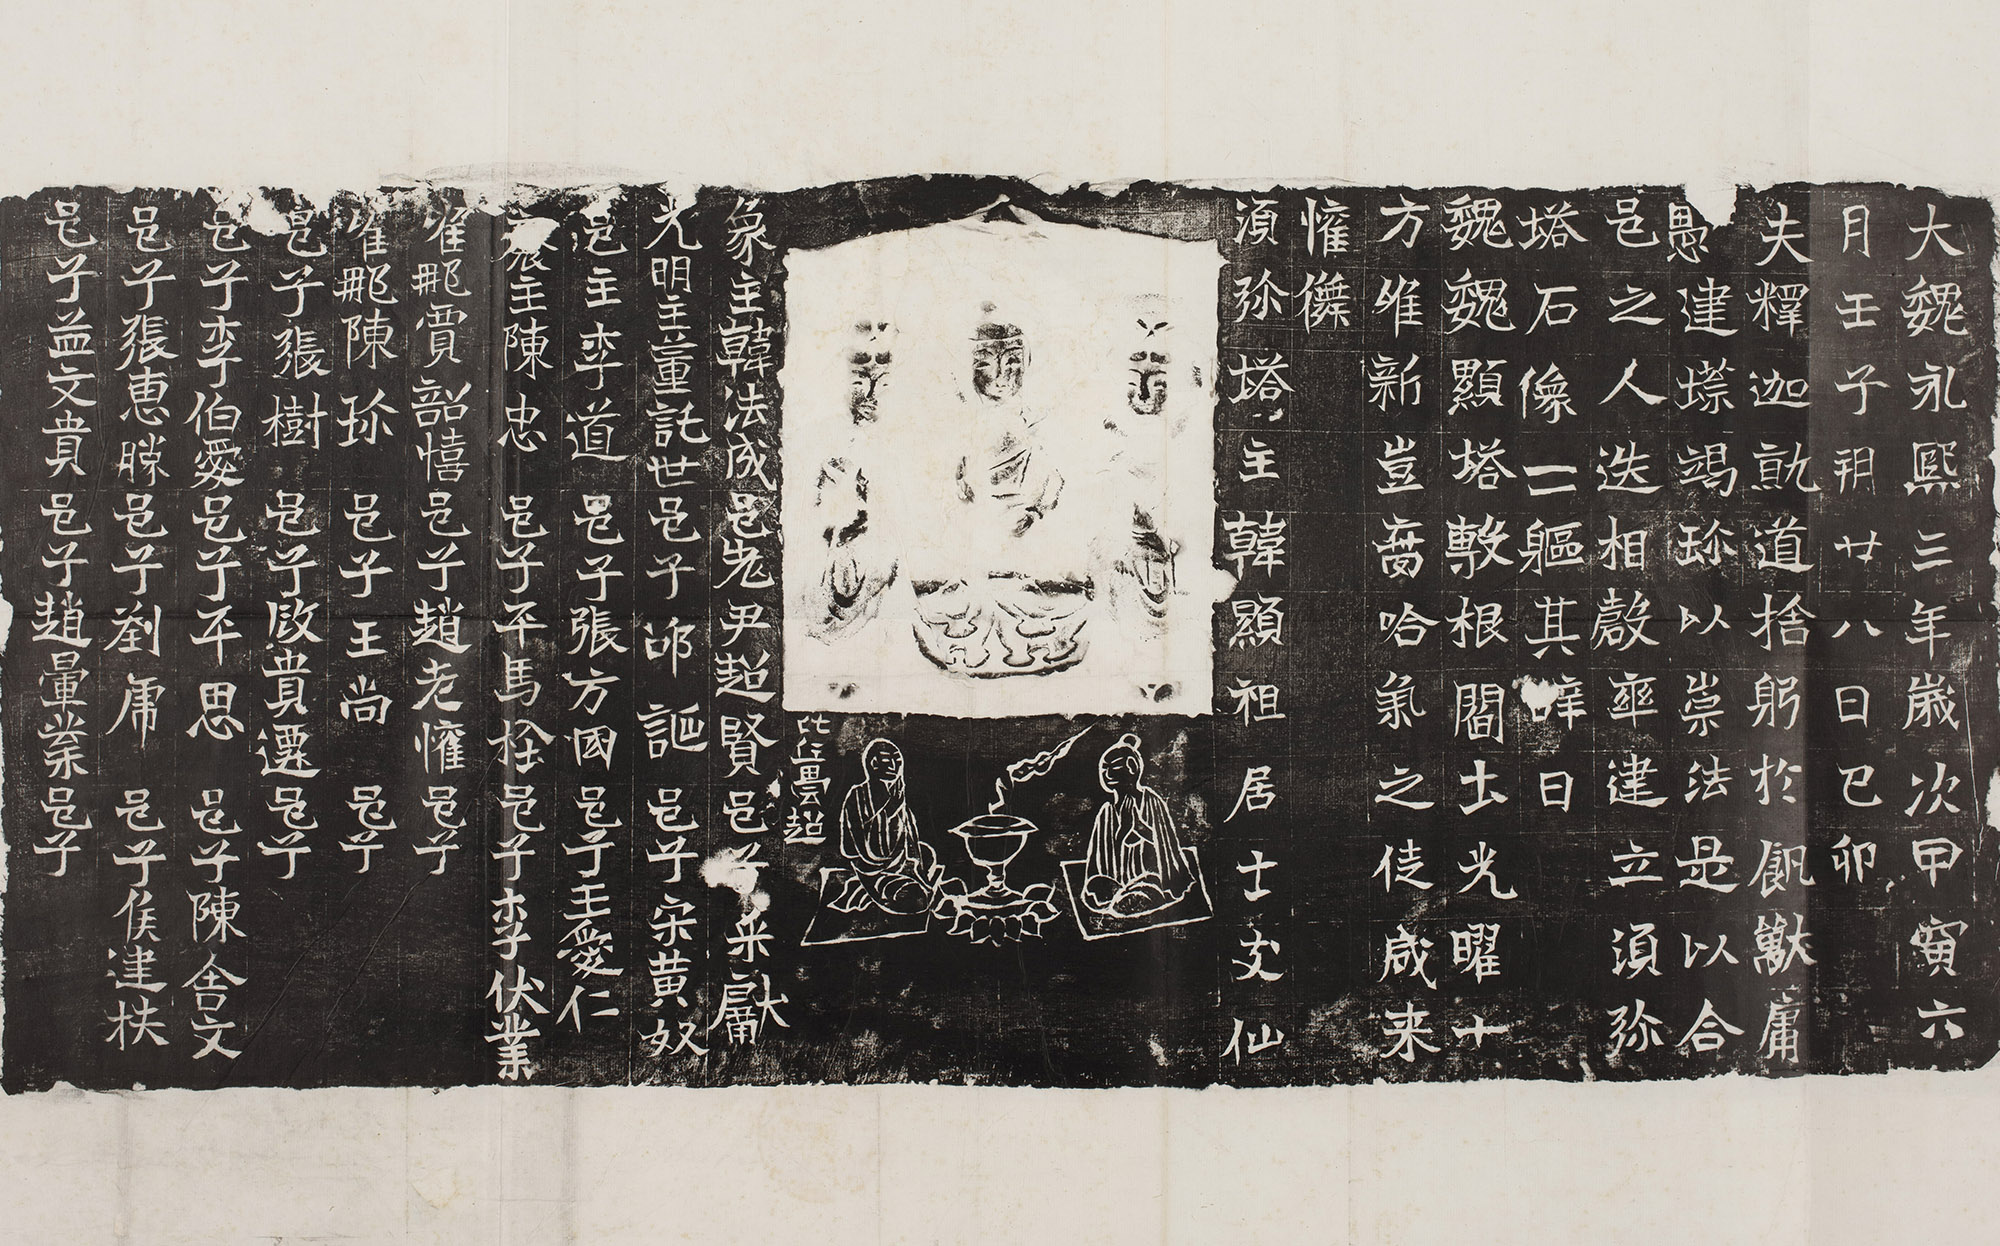 大魏永熙三年歲次甲寅六
月壬子朔廿八日己卯
夫釋迦就道捨躬於飢獸庸
愚建墖竭珎以崇法是以合
邑之人迭相啟率建立須弥
塔石像一軀其辭曰
魏魏顯塔敷根閻土光曜十
方唯新豈啻哈氣之徒咸来
懽儛
須弥塔主韓顯祖居士支仙
比丘曇超
象主韓法成邑先尹超賢邑子采獻
光明主董託世邑子邵謳邑子宋黃奴
邑主李道邑子張方國邑子王愛仁
主陳忠邑子平馬栓邑子李伏業
唯那賈韶憘邑子趙老懽邑子
唯那陳珎邑子王尚邑子
邑子張樹邑子殷貴遷邑子
邑子李伯愛邑子平思邑子陳舍文
邑子張惠勝邑子劉庸邑子侯建扶
邑子益文貴邑子趙暈業邑子